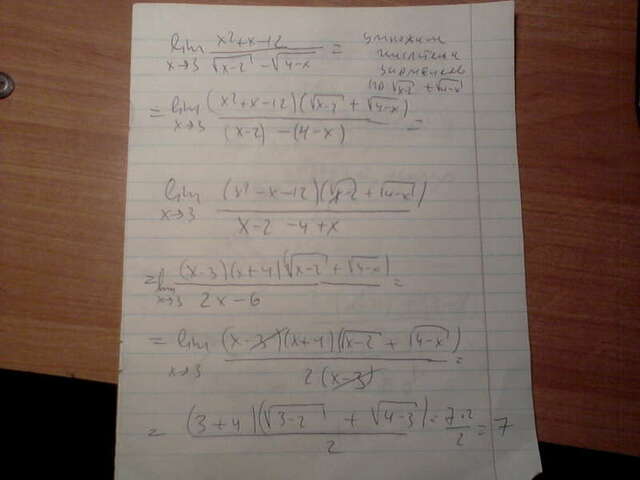 lim x→3 (x²+x-12)/(√(x-2) - √(4-x)) = умножим
числителя
знаменатель
на √(x-2) + √(4-x)
= lim x→3 ((x²+x-12)(√(x-2) + √(4-x)))/((x-2) - (4-x)) =
lim x→3 ((x²-x-12)(√(x-2) + √(4-x)))/(x-2-4+x)
= lim x→3 ((x-3)(x+4)(√(x-2) + √(4-x)))/(2x-6) =
= lim x→3 ((x-3)(x+4)(√(x-2) + √(4-x)))/(2(x-3)) =
= ((3+4)(√(3-2) + √(4-3)))/2 = 7·2/2 = 7